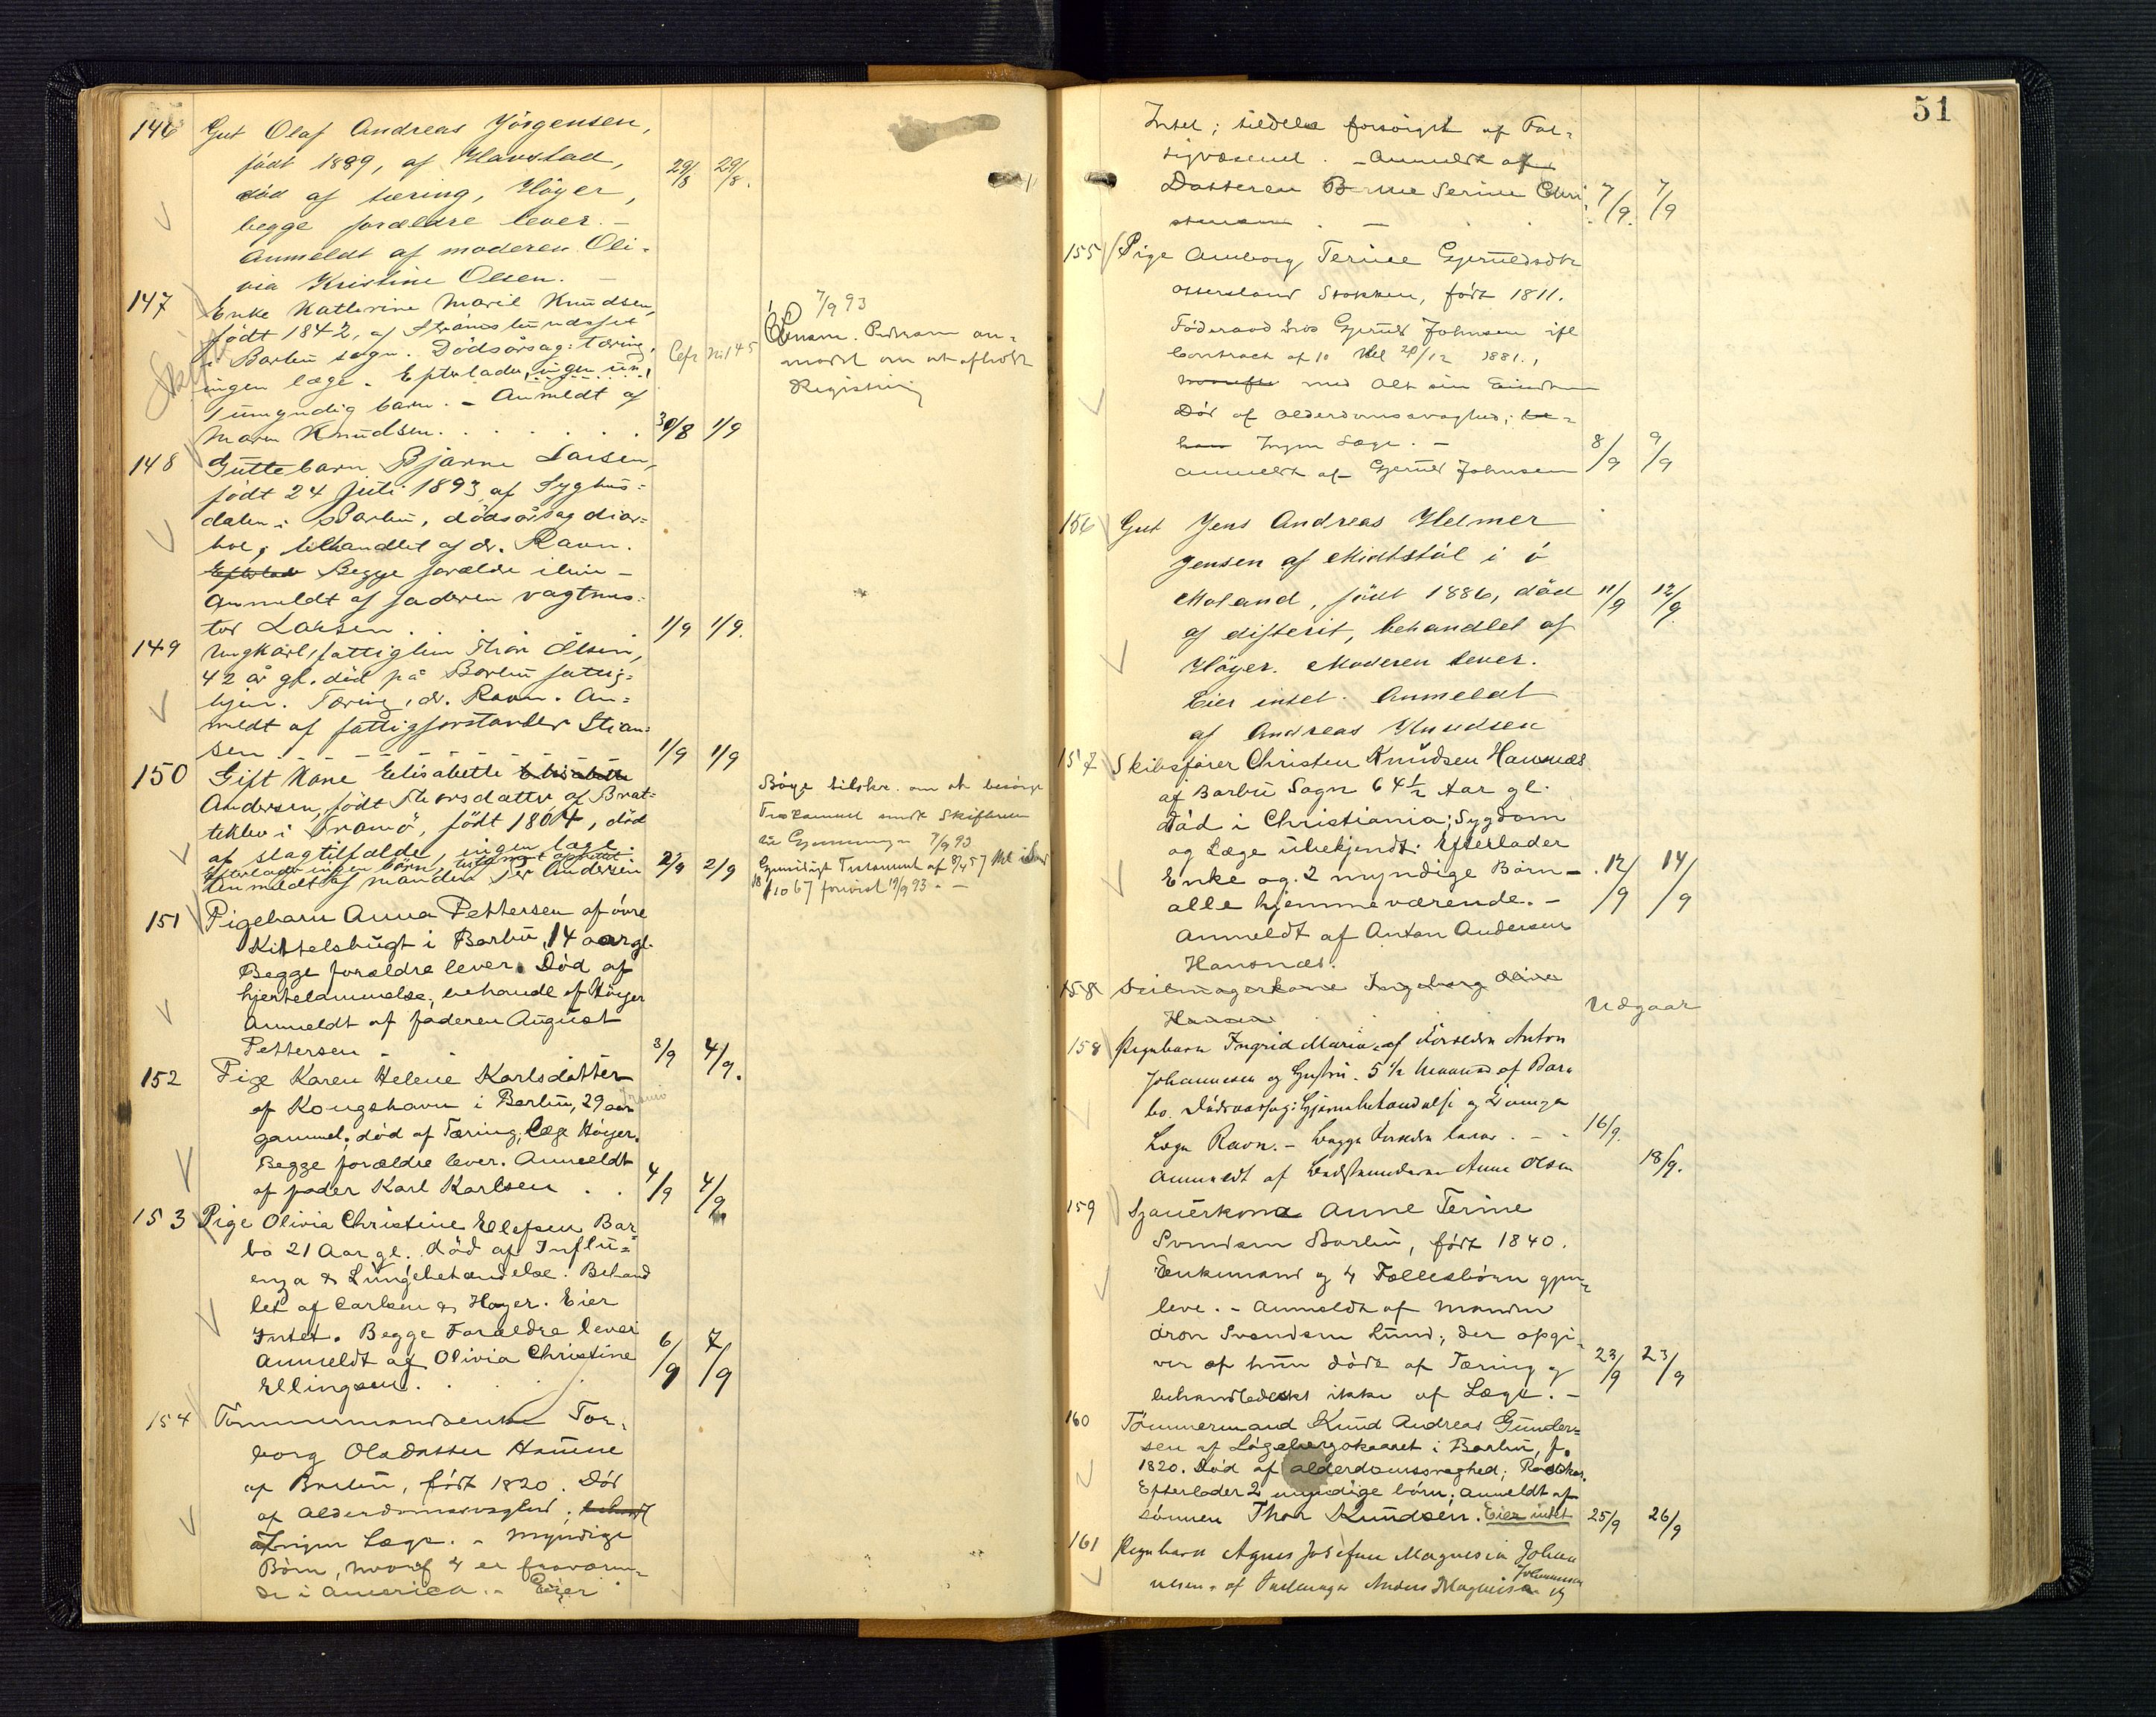 146 Gut Olaf Andreas Jörgensen,
født 1889, af Havstad,
død af tæring, Höyer, 29/8 29/8.
begge forældre lever. –
Anmeldt af moderen Oli-
via Kristine Olsen. –
147 Enke Kathrine Maril Knudsen,
født 1842, af
i Barbu sogn. Dödsårsag: tæring,
ingen læge. Efterlader, ingen un,
1 umyndig barn. – Anmeldt af
Maren Knudsen. 30/8 1/9
Cefr No 145
7/9 93
Lensm. Pedersen an-
modet om at afholde
Registring
148 Guttebarn Bjarne Larsen,
født 24 juli 1893 af Syghus-
dalen i Barbu, dödsårsag diar-
hoe, behandlet af dr. Ravn.
Efterlad Begge forældre ilive –
Anmeldt af faderen vagtmes-
ter Larsen. 1/9 1/9.
149 Ungkarl, fattiglem Thor Olsen,
42 år gl. död på Barbu fattig-
hjem. Tæring, dr. Ravn. An-
meldt af fattigforstander Stian-
sen. 1/9 1/9
150 Gift Kone Elisabette Elisabette
Andersen, født Thorsdatter af Brat-
teklev i Tromö, født 1804, död
af slagtilfælde, ingen læge.
Efterlader ingen börn, testament oprettet
Anmeldt af manden Per Andersen 2/9 2/9
Böye tilskr. om at besörge
Testament sendt Skifteretten
til Gjennemsyn 7/9 93
Gjensidigt Testament af 8/4 57
151 Pigebarn Anna Pettersen af övre
Kittelsbugt i Barbu, 14 aar gl.
Begge forældre lever. Död af
hjertelammelse, behandl. af Höyer
Anmeldt af faderen August
Pettersen – 3/9 4/9.
152 Pige Karen Helene Karlsdatter
af Kongshavn i Barbu, 29 aar Tromö
gammel; död af Tæring; Læge Höyer.
Begge forældre lever. Anmeldt
af fader Karl Karlsen . . 4/9 4/9
153 Pige Olivia Christine Ellefsen Bar-
bo 21 Aar gl. död af Influ-
enza & Lungebetændelse. Behand
let af Carlsen & Höyer. Eier
Intet. Begge Forældre lever
Anmeldt af Olivia Christine 6/9 7/9
Ellingsen.
154 Tömmermandsenke Tor-
borg Olsdatter
af Barbu, født 1820. Död
af Alderdomssvaghed; behandl
Ingen Læge. – Myndige
Börn, hvoraf 4 er fraværen-
de i America. – Eier
51
Intet; tildels forsörget af Fat-
tigvæsenet. – Anmeldt af
Datteren Serine Chri-
stensen. – 7/9. 7/9
155 Pige Amborg Terine Gjerulfsdtr
Stokken, født 1811.
Föderaad hos Gjerulf Johnsen ifl
Contract af 10 thl 29/12 1881.,
hvorefter med Alt sin Eiendom
Död af Alderdomssvaghed; be-
han Ingen Læge. – 8/9 9/9
Anmeldt af Gjerulf Johnsen
156 Gut Jens Andreas Helmer
Jensen af Midtstöl i ö
Moland, født 1886, död 11/9 12/9
af difterit, behandlet af
Höyer. Moderen lever.
Eier intet. Anmeldt
af Andreas Knudsen
157 Skibsfører Christen Knudsen Hansnæs
af Barbu Sogn 64½ Aar gl.
död i Christiania; Sygdom
og Læge ubekjendt. Efterlader
Enke og 2 myndige Börn – . 12/9 14/9
alle hjemmeværende. –
Anmeldt af Anton Andersen
Hansnæs.
158 Seilmagerkone Ingeborg Oline
Hansen Udgaar
158 Pigebarn Ingrid Marie, af Forældre Anton
Johannesen og Hustru. 5½ Maaned af Bar-
bo. Dödsaarsag: Hjernebetændelse og
Læge Ravn. – Begge Forældre lever. – 16/9.
Anmeldt af Anne Olsen 18/9.
159 Sjauerkone Anne Terine
Svendsen Barbu, født 1840.
Enkemand og 4 Fællesbörn gjen-
leve. – Anmeldt af Manden
Aron Svendsen Lund; der opgi-
ver at hun döde af Tæring og 23/9 23/9
behandledes ikke af Læge. –
160 Tömmermand Knud Andreas Gunder-
sen af i Barbu, f.
1820. Död af alderdomssvaghed;
Efterlader 2 myndige börn. Anmeldt af
sönnen Thor Knudsen. Eier intet 25/9 26/9
161 Pigebarn Agnes Josefine Magnesia Johan
nesen, af Anders Magnus Johannesen og